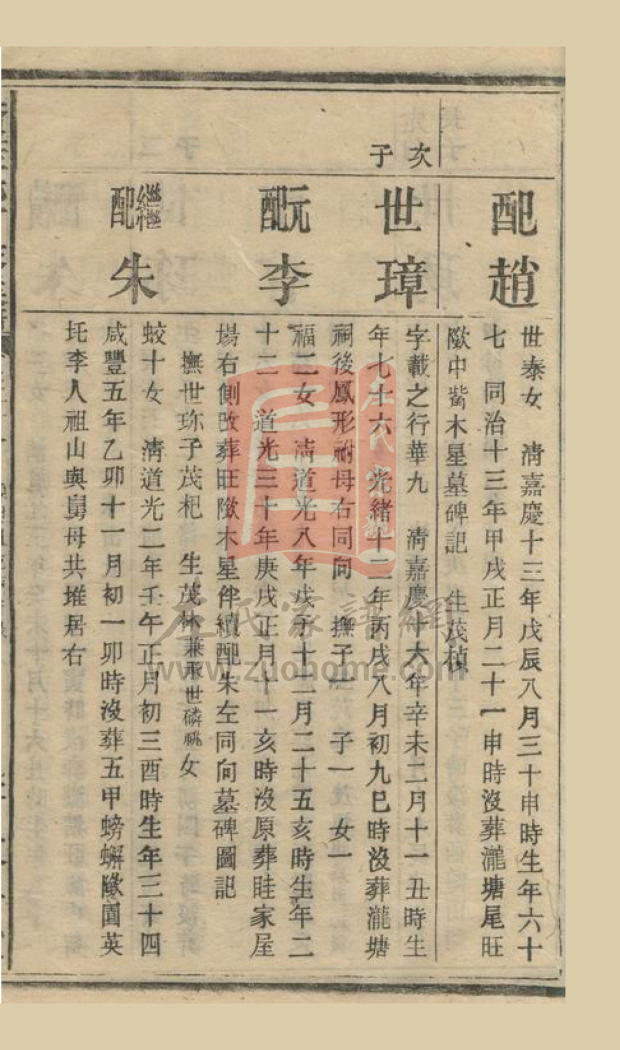 配趙
世泰女　清嘉慶十三年戊辰八月三十申時生年六十
七　同治十三年甲戌正月二十一申時沒葬瀧塘尾旺
歞中觜木星墓碑記　生茂楨
次子
世璋
字載之行華九　清嘉慶十六年辛未二月十一丑時生
年七十六　光緒十二年丙戌八月初九巳時沒葬瀧塘
祠後鳳形祔母右同向　撫子一　子一　女一
元配李
福二女　清道光八年戊子十二月二十五亥時生年二
十三　道光三十年庚戌正月十一亥時沒原葬畦家屋
場右側改葬旺歞木星伴續配朱左同向墓碑圖記
撫世珎子茂杞　生茂林兼承世磷祧女
繼配朱
蛟十女　清道光二年壬午正月初三酉時生年三十四
咸豐五年乙卯十一月初一卯時沒葬五甲螃蠏歞園英
圫李人祖山與舅母共堆居右
左氏家譜網
www.zuohome.com